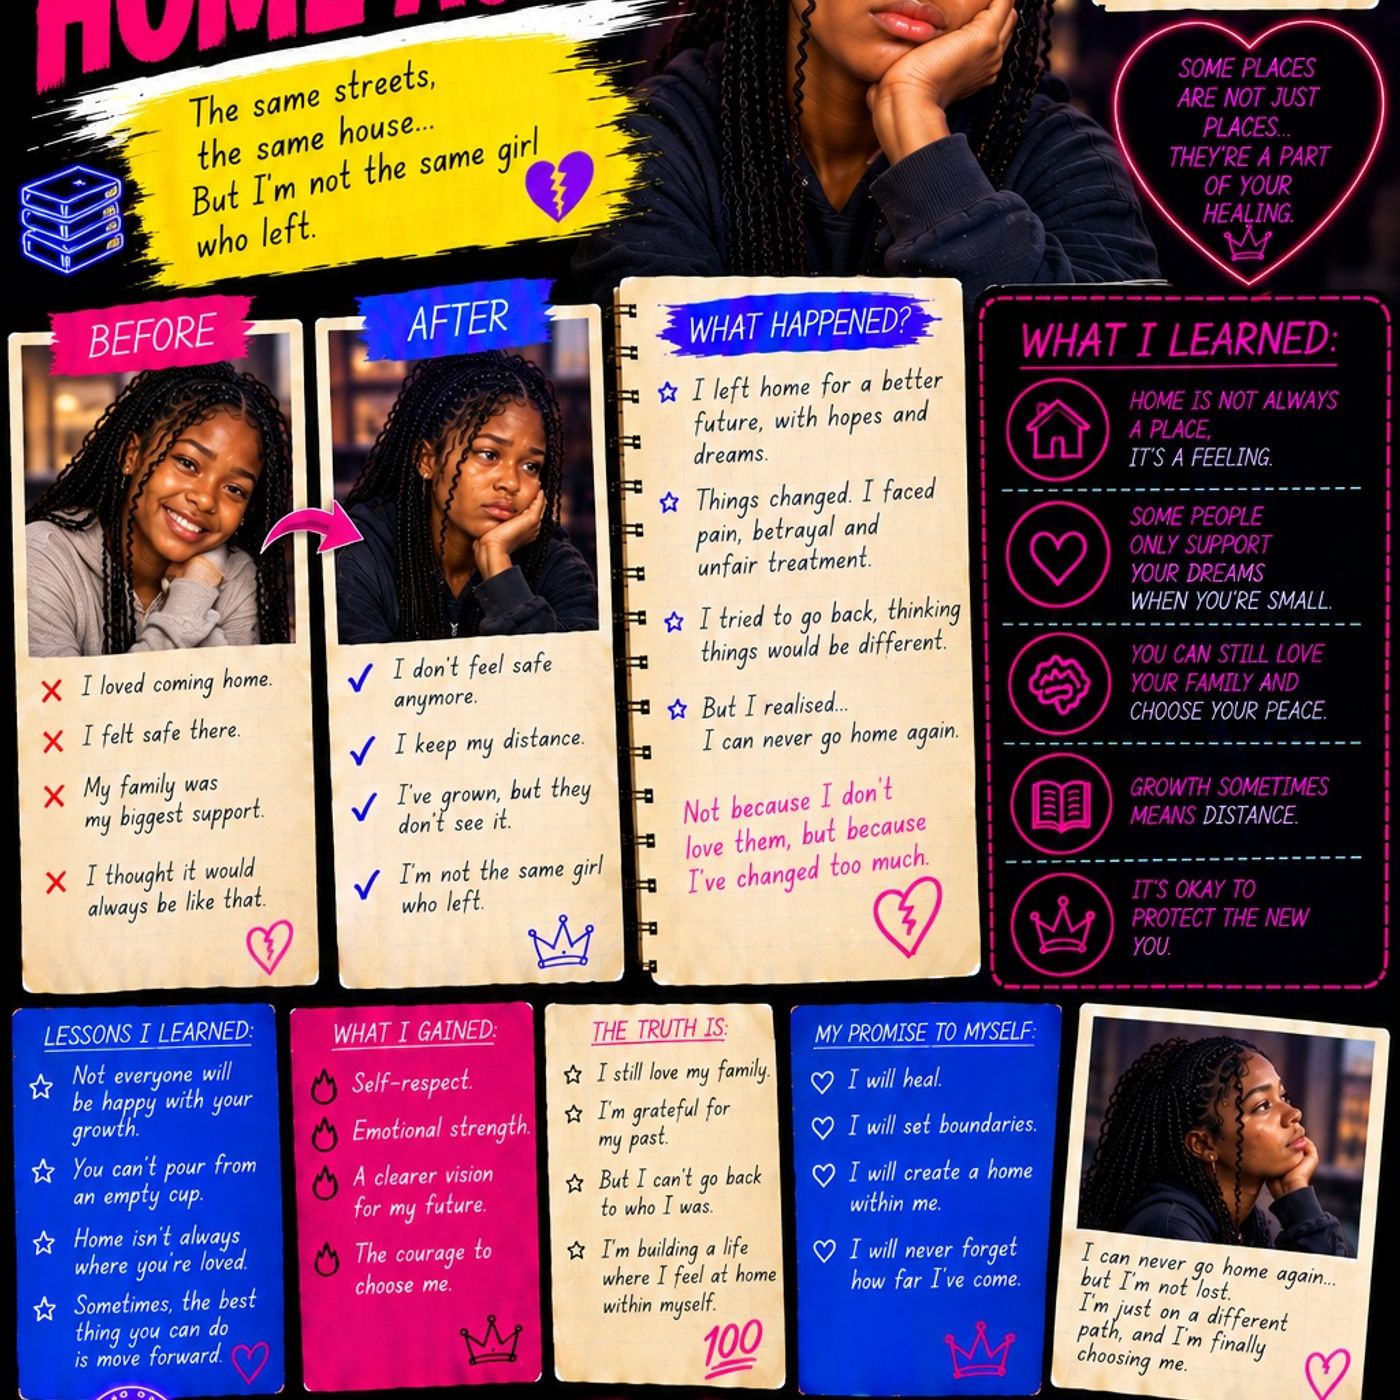 HOME
The same streets,
the same house...
But I'm not the same girl
who left.
SOME PLACES
ARE NOT JUST
PLACES...
THEY'RE A PART
OF YOUR
HEALING.
BEFORE
I loved coming home.
I felt safe there.
My family was
my biggest support.
I thought it would
always be like that.
AFTER
I don't feel safe
anymore.
I keep my distance.
I've grown, but they
don't see it.
I'm not the same girl
who left.
WHAT HAPPENED?
I left home for a better
future, with hopes and
dreams.
Things changed. I faced
pain, betrayal and
unfair treatment.
I tried to go back, thinking
things would be different.
But I realised...
I can never go home again.
Not because I don't
love them, but because
I've changed too much.
WHAT I LEARNED:
HOME IS NOT ALWAYS
A PLACE,
IT'S A FEELING.
SOME PEOPLE
ONLY SUPPORT
YOUR DREAMS
WHEN YOU'RE SMALL.
YOU CAN STILL LOVE
YOUR FAMILY AND
CHOOSE YOUR PEACE.
GROWTH SOMETIMES
MEANS DISTANCE.
IT'S OKAY TO
PROTECT THE NEW
YOU.
LESSONS I LEARNED:
Not everyone will
be happy with your
growth.
You can't pour from
an empty cup.
Home isn't always
where you're loved.
Sometimes, the best
thing you can do
is move forward.
WHAT I GAINED:
Self-respect.
Emotional strength.
A clearer vision
for my future.
The courage to
choose me.
THE TRUTH IS:
I still love my family.
I'm grateful for
my past.
But I can't go back
to who I was.
I'm building a life
where I feel at home
within myself.
100
MY PROMISE TO MYSELF:
I will heal.
I will set boundaries.
I will create a home
within me.
I will never forget
how far I've come.
I can never go home again...
but I'm not lost.
I'm just on a different
path, and I'm finally
choosing me.